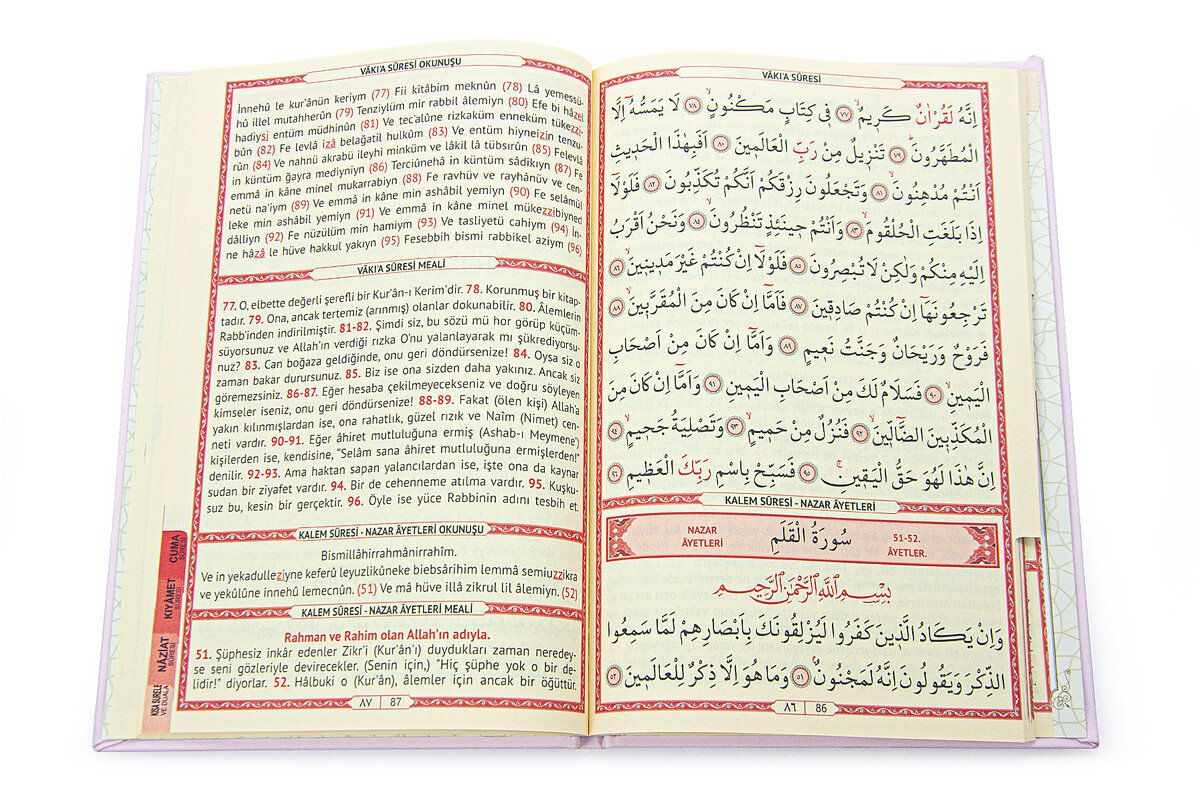 VÂKI'A SÛRESİ
اِنَّهُ لَقُرْاٰنٌ كَر۪يمٌۙ ﴿٧٧﴾ ف۪ي كِتَابٍ مَكْنُونٍۙ ﴿٧٨﴾ لَا يَمَسُّهُٓ اِلَّا
الْمُطَهَّرُونَۜ ﴿٧٩﴾ تَنْز۪يلٌ مِنْ رَبِّ الْعَالَم۪ينَ ﴿٨٠﴾ اَفَبِهٰذَا الْحَد۪يثِ
اَنْتُمْ مُدْهِنُونَۙ ﴿٨١﴾ وَتَجْعَلُونَ رِزْقَكُمْ اَنَّكُمْ تُكَذِّبُونَ ﴿٨٢﴾ فَلَوْلَٓا
اِذَا بَلَغَتِ الْحُلْقُومَۙ ﴿٨٣﴾ وَاَنْتُمْ ح۪ينَئِذٍ تَنْظُرُونَۙ ﴿٨٤﴾ وَنَحْنُ اَقْرَبُ
اِلَيْهِ مِنْكُمْ وَلٰكِنْ لَا تُبْصِرُونَ ﴿٨٥﴾ فَلَوْلَٓا اِنْ كُنْتُمْ غَيْرَ مَد۪ين۪ينَۙ ﴿٨٦﴾
تَرْجِعُونَهَٓا اِنْ كُنْتُمْ صَادِق۪ينَ ﴿٨٧﴾ فَاَمَّٓا اِنْ كَانَ مِنَ الْمُقَرَّب۪ينَۙ ﴿٨٨﴾
فَرَوْحٌ وَرَيْحَانٌ وَجَنَّتُ نَع۪يمٍ ﴿٨٩﴾ وَاَمَّٓا اِنْ كَانَ مِنْ اَصْحَابِ
الْيَم۪ينِۙ ﴿٩٠﴾ فَسَلَامٌ لَكَ مِنْ اَصْحَابِ الْيَم۪ينِ ﴿٩١﴾ وَاَمَّٓا اِنْ كَانَ مِنَ
الْمُكَذِّب۪ينَ الضَّٓالّ۪ينَۙ ﴿٩٢﴾ فَنُزُلٌ مِنْ حَم۪يمٍۙ ﴿٩٣﴾ وَتَصْلِيَةُ جَح۪يمٍ ﴿٩٤﴾
اِنَّ هٰذَا لَهُوَ حَقُّ الْيَق۪ينِۚ ﴿٩٥﴾ فَسَبِّحْ بِاسْمِ رَبِّكَ الْعَظ۪يمِ ﴿٩٦﴾
KALEM SÛRESİ - NAZAR ÂYETLERİ
NAZAR ÂYETLERİ سُورَةُ الْقَلَمِ 51-52. ÂYETLER.
بِسْمِ اللّٰهِ الرَّحْمٰنِ الرَّح۪يمِ
وَاِنْ يَكَادُ الَّذ۪ينَ كَفَرُوا لَيُزْلِقُونَكَ بِاَبْصَارِهِمْ لَمَّا سَمِعُوا
الذِّكْرَ وَيَقُولُونَ اِنَّهُ لَمَجْنُونٌۢ ﴿٥١﴾ وَمَا هُوَ اِلَّا ذِكْرٌ لِلْعَالَم۪ينَ ﴿٥٢﴾
٨٦ 86
VÂKI'A SÛRESİ OKUNUŞU
İnnehû le kur'ânün keriym (77) Fii kitâbim meknûn (78) Lâ yemessü-
hû illel mutahherûn (79) Tenziylüm mir rabbil âlemiyn (80) Efe bi hâzel
hadiysi entüm müdhinûn (81) Ve tec'alûne rizkaküm enneküm tükezzi-
bûn (82) Fe levlâ izâ belağatil hulkûm (83) Ve entüm hiyneizin tenzu-
rûn (84) Ve nahnü akrabü ileyhi minküm ve lâkil lâ tübsırûn (85) Felevlâ
in küntüm ğayra mediyniyn (86) Terciûnehâ in küntüm sâdikıyn (87) Fe
emmâ in kâne minel mukarrabiyn (88) Fe ravhüv ve rayhânüv ve cen-
netü na'iym (89) Ve emmâ in kâne min ashâbil yemiyn (90) Fe selâmül
leke min ashâbil yemiyn (91) Ve emmâ in kâne minel mükezzibiyned
dâlliyn (92) Fe nüzülüm min hamiym (93) Ve tasliyetü cahiym (94) İn-
ne hâzâ le hüve hakkul yakıyn (95) Fesebbih bismi rabbikel aziym (96)
VÂKI'A SÛRESİ MEALİ
77. O, elbette değerli şerefli bir Kur'ân-ı Kerim'dir. 78. Korunmuş bir kitap-
tadır. 79. Ona, ancak tertemiz (arınmış) olanlar dokunabilir. 80. Âlemlerin
Rabb'inden indirilmiştir. 81-82. Şimdi siz, bu sözü mü hor görüp küçüm-
süyorsunuz ve Allah'ın verdiği rızka O'nu yalanlayarak mı şükrediyorsu-
nuz? 83. Can boğaza geldiğinde, onu geri döndürsenize! 84. Oysa siz o
zaman bakar durursunuz. 85. Biz ise ona sizden daha yakınız. Ancak siz
göremezsiniz. 86-87. Eğer hesaba çekilmeyecekseniz ve doğru söyleyen
kimseler iseniz, onu geri döndürsenize! 88-89. Fakat (ölen kişi) Allah'a
yakın kılınmışlardan ise, ona rahatlık, güzel rızık ve Naîm (Nimet) cen-
neti vardır. 90-91. Eğer âhiret mutluluğuna ermiş (Ashab-ı Meymene')
kişilerden ise, kendisine, "Selâm sana âhiret mutluluğuna ermişlerden!"
denilir. 92-93. Ama haktan sapan yalancılardan ise, işte ona da kaynar
sudan bir ziyafet vardır. 94. Bir de cehenneme atılma vardır. 95. Kuşku-
suz bu, kesin bir gerçektir. 96. Öyle ise yüce Rabbinin adını tesbih et.
KALEM SÛRESİ - NAZAR ÂYETLERİ OKUNUŞU
Bismillâhirrahmânirrahîm.
Ve in yekadulleziyne keferû leyuzlikûneke biebsârihim lemmâ semiuzzikra
ve yekûlûne innehû lemecnûn. (51) Ve mâ hüve illâ zikrul lil âlemiyn. (52)
KALEM SÛRESİ - NAZAR ÂYETLERİ MEALİ
Rahman ve Rahim olan Allah'ın adıyla.
51. Şüphesiz inkâr edenler Zikr'i (Kur'ân'ı) duydukları zaman neredey-
se seni gözleriyle devirecekler. (Senin için,) "Hiç şüphe yok o bir de-
lidir!" diyorlar. 52. Hâlbuki o (Kur'ân), âlemler için ancak bir öğüttür.
٨٧ 87
CUMA SÛRESİ
KIYÂMET SÛRESİ
NÂZİAT SÛRESİ
KISA SÛRELER VE DUALAR